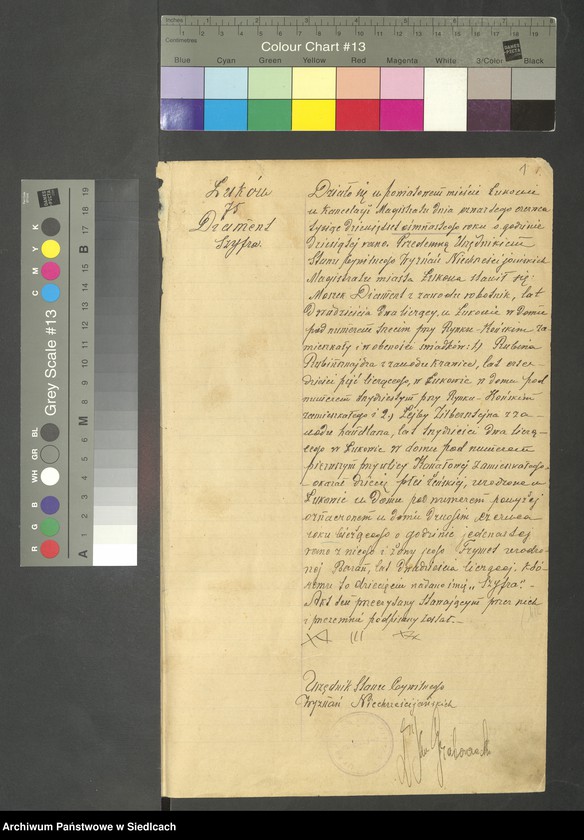 Inches 1 2 3 4 5 6 7 8
Centimetres 1 2 3 4 5 6 7 8 9 10 11 12 13 14 15 16 17 18 19
Colour Chart #13
Blue Cyan Green Yellow Red Magenta White 3/Color Black
Grey Scale #13
C M Y K
R G B WH GR BL
A 1 2 3 4 5 6 M 8 9 10 11 12 13 14 15 B 17 18 19
1
Łuków
75
Diament
Szyfra
Działo się w powiatowem mieście Łukowie
w Kancelaryi Magistratu dnia czerwca
tysiąc dziewięćset roku o godzinie
dziesiątej rano. Przedemną Urzędnikiem
Stanu Cywilnego Wyznań Niechrześcijańskich
Magistratu miasta Łukowa stawił się:
Moszek Diament z zawodu robotnik, lat
dwadzieścia dwa liczący, w Łukowie w domu
pod numerem trzecim przy Rynku-Końskim za-
mieszkały i w obecności świadków: 1) Rubina
z zawodu kramarz, lat
pięć liczącego, w Łukowie w domu pod
numerem przy Rynku-Końskim
zamieszkałego i 2) Lejby Zilbersztejna z za-
wodu handlarza, lat trzydzieści dwa liczą-
cego w Łukowie w domu pod numerem
pierwszym przy ulicy zamieszkałego,
okazał dziecię płci żeńskiej, urodzone w
Łukowie w domu pod numerem powyżej
oznaczonem w dniu drugim czerwca
roku bieżącego o godzinie jedenastej
rano z niego i żony jego Frymet urodzo-
nej Baran, lat dwadzieścia liczącej. Któ-
remu to dziecięciu nadano imię „Szyfra”.-
Akt ten przeczytany stawającym przez nich
i przezemnie podpisany został.-
Urzędnik Stanu Cywilnego
Wyznań Niechrześcijańskich
Archiwum Państwowe w Siedlcach